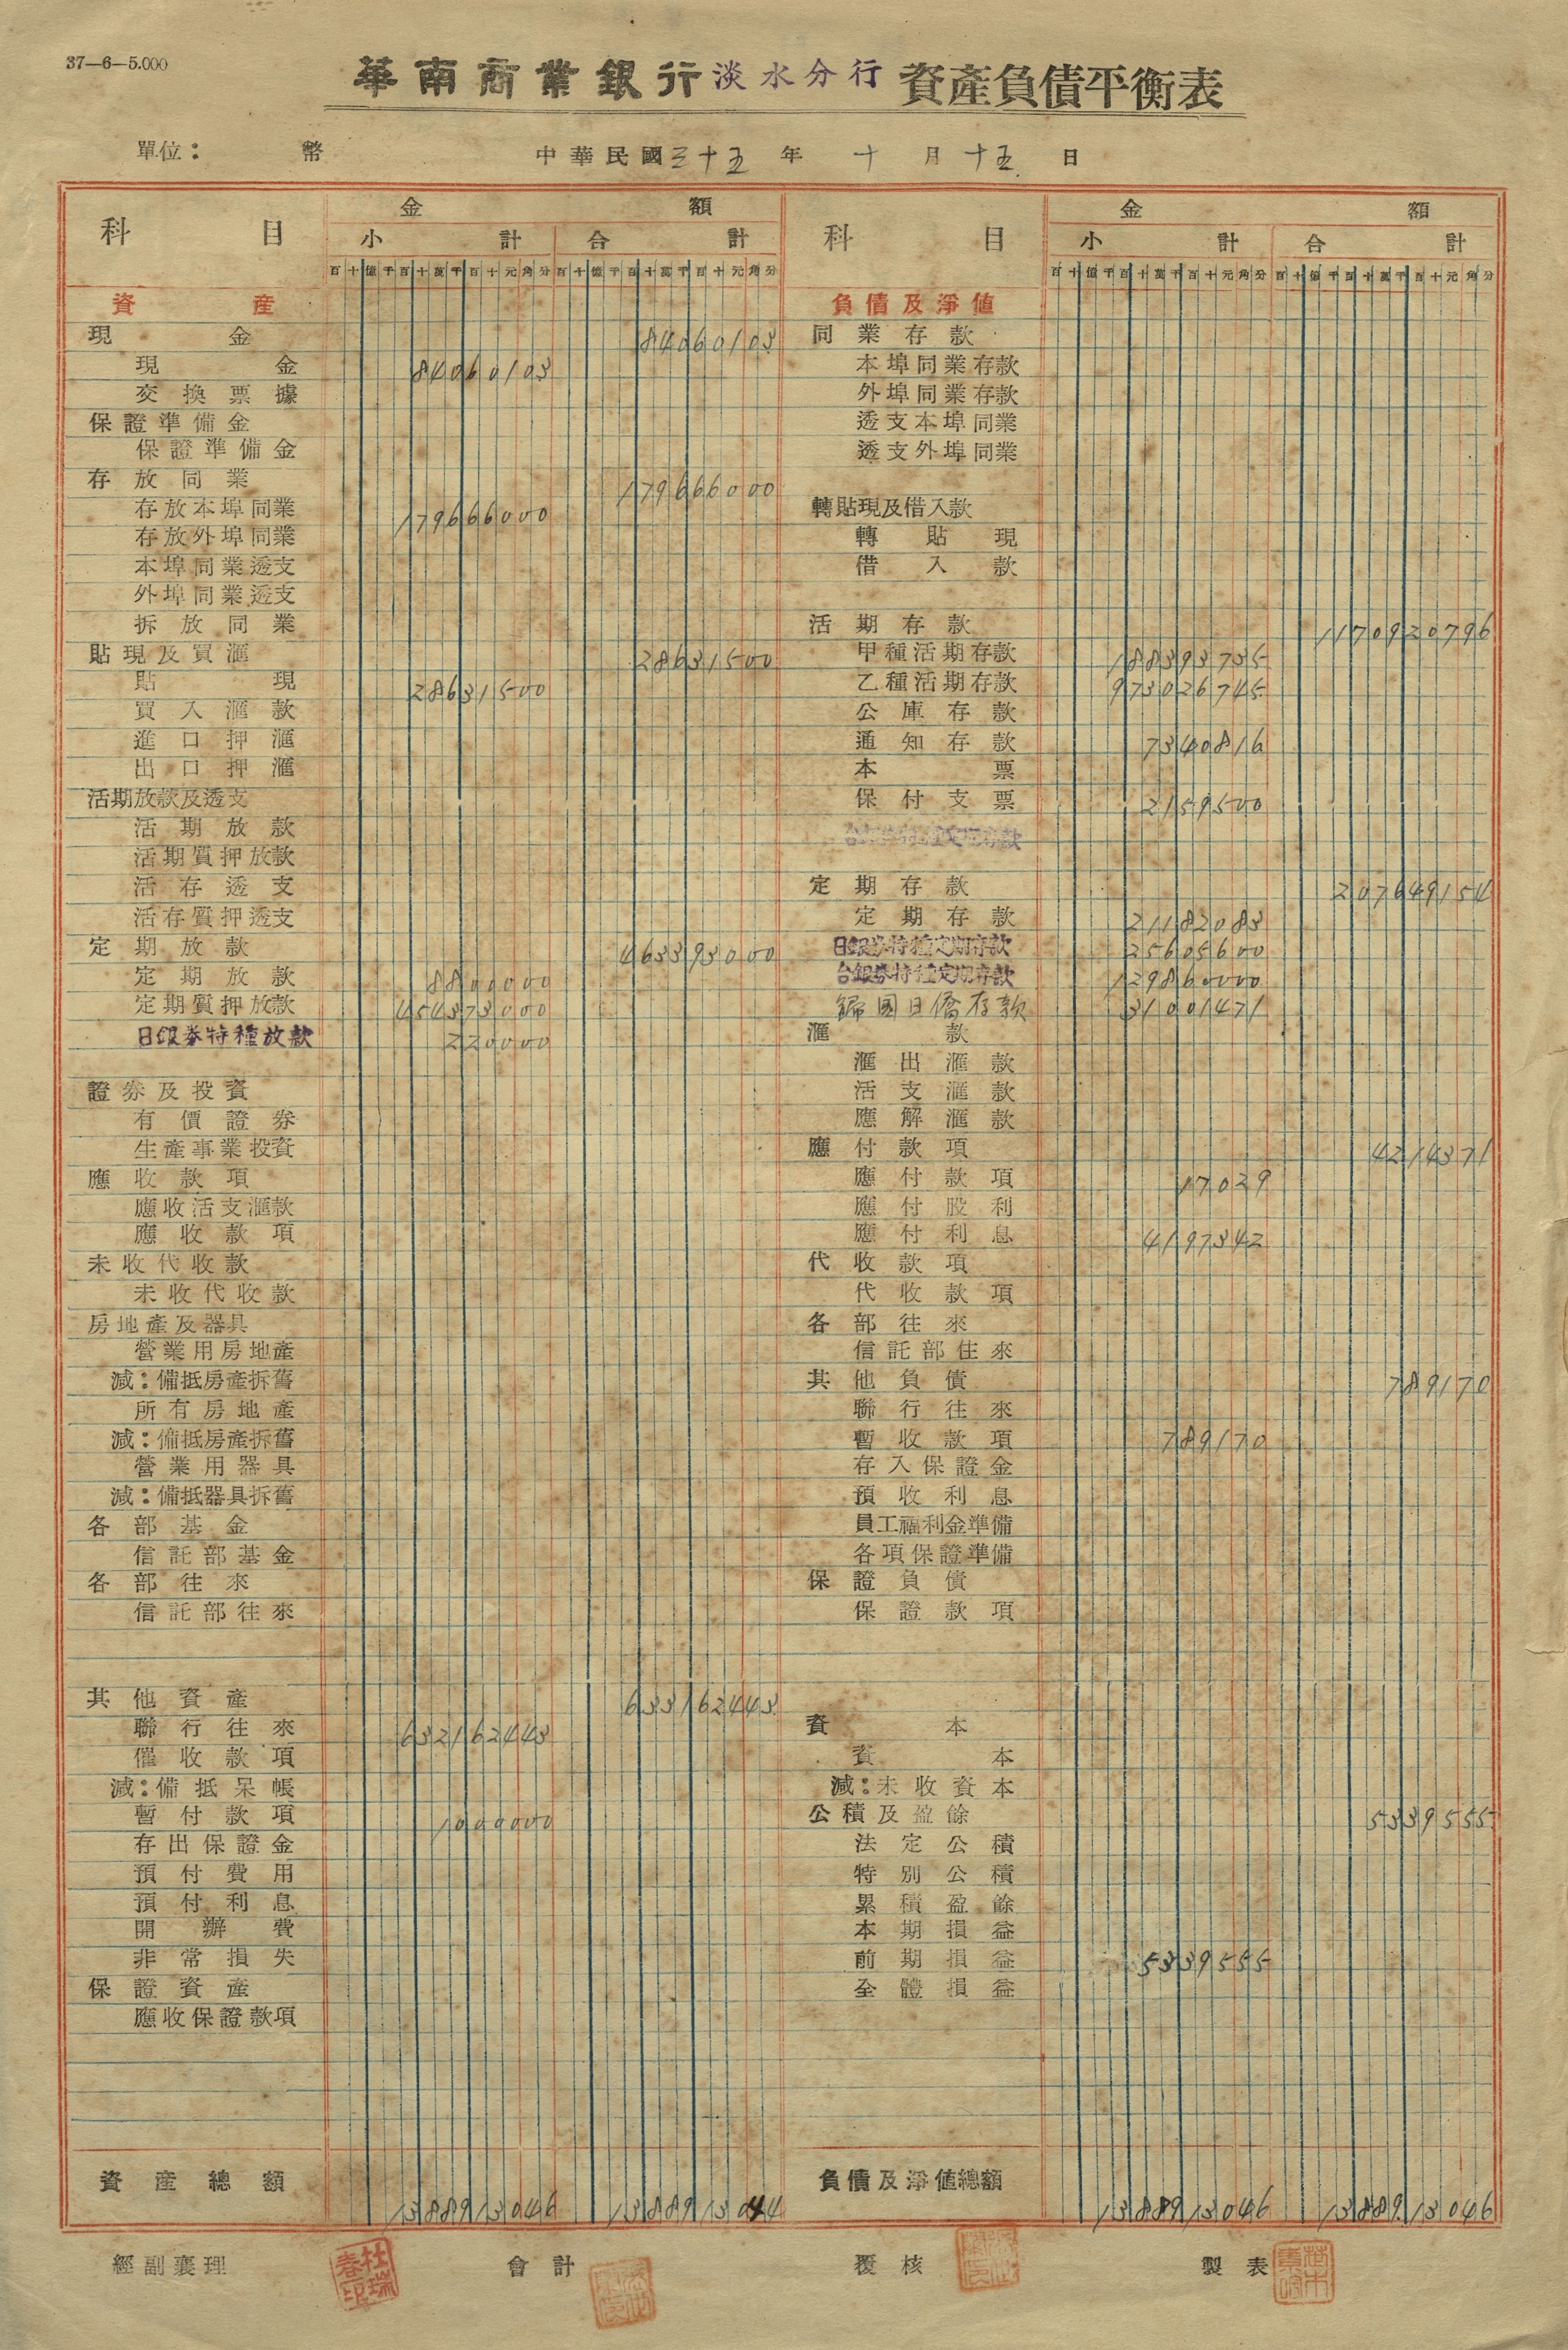 37—6—5.000
華南商業銀行淡水分行 資產負債平衡表
單位： 幣 中華民國三十五年 十月十五日
科目 金額
小計 合計
百十億千百十萬千百十元角分 百十億千百十萬千百十元角分
資產
現金 84060103
現金 84060103
交換票據
保證準備金
保證準備金
存放同業 179666000
存放本埠同業 179666000
存放外埠同業
本埠同業透支
外埠同業透支
拆放同業
貼現及買滙 28631500
貼現 28631500
買入滙款
進口押滙
出口押滙
活期放款及透支
活期放款
活期質押放款
活存透支
活存質押透支
定期放款 463393000
定期放款 8800000
定期質押放款 454373000
日銀券特種放款 220000
證券及投資
有價證券
生產事業投資
應收款項
應收活支滙款
應收款項
未收代收款
未收代收款
房地產及器具
營業用房地產
減：備抵房產拆舊
所有房地產
減：備抵房產拆舊
營業用器具
減：備抵器具拆舊
各部基金
信託部基金
各部往來
信託部往來
其他資產 633162443
聯行往來 632162443
催收款項
減：備抵呆帳
暫付款項 1000000
存出保證金
預付費用
預付利息
開辦費
非常損失
保證資產
應收保證款項
資產總額 1388913046 1388913044
科目 金額
小計 合計
百十億千百十萬千百十元角分 百十億千百十萬千百十元角分
負債及淨值
同業存款
本埠同業存款
外埠同業存款
透支本埠同業
透支外埠同業
轉貼現及借入款
轉貼現
借入款
活期存款 1170920796
甲種活期存款 188393735
乙種活期存款 973026745
公庫存款
通知存款 7340816
本票
保付支票 2159500
台銀券特種定期存款
定期存款 207649154
定期存款 21182083
日銀券特種定期存款 25605600
台銀券特種定期存款 129860000
歸國日僑存款 31001471
滙款
滙出滙款
活支滙款
應解滙款
應付款項 4214371
應付款項 17029
應付股利
應付利息 4197342
代收款項
代收款項
各部往來
信託部往來
其他負債 789170
聯行往來
暫收款項 789170
存入保證金
預收利息
員工福利金準備
各項保證準備
保證負債
保證款項
資本
資本
減：未收資本
公積及盈餘 5339555
法定公積
特別公積
累積盈餘
本期損益
前期損益 5339555
全體損益
負債及淨值總額 1388913046 1388913046
經副襄理 杜瑞春印 會計 覆核 製表